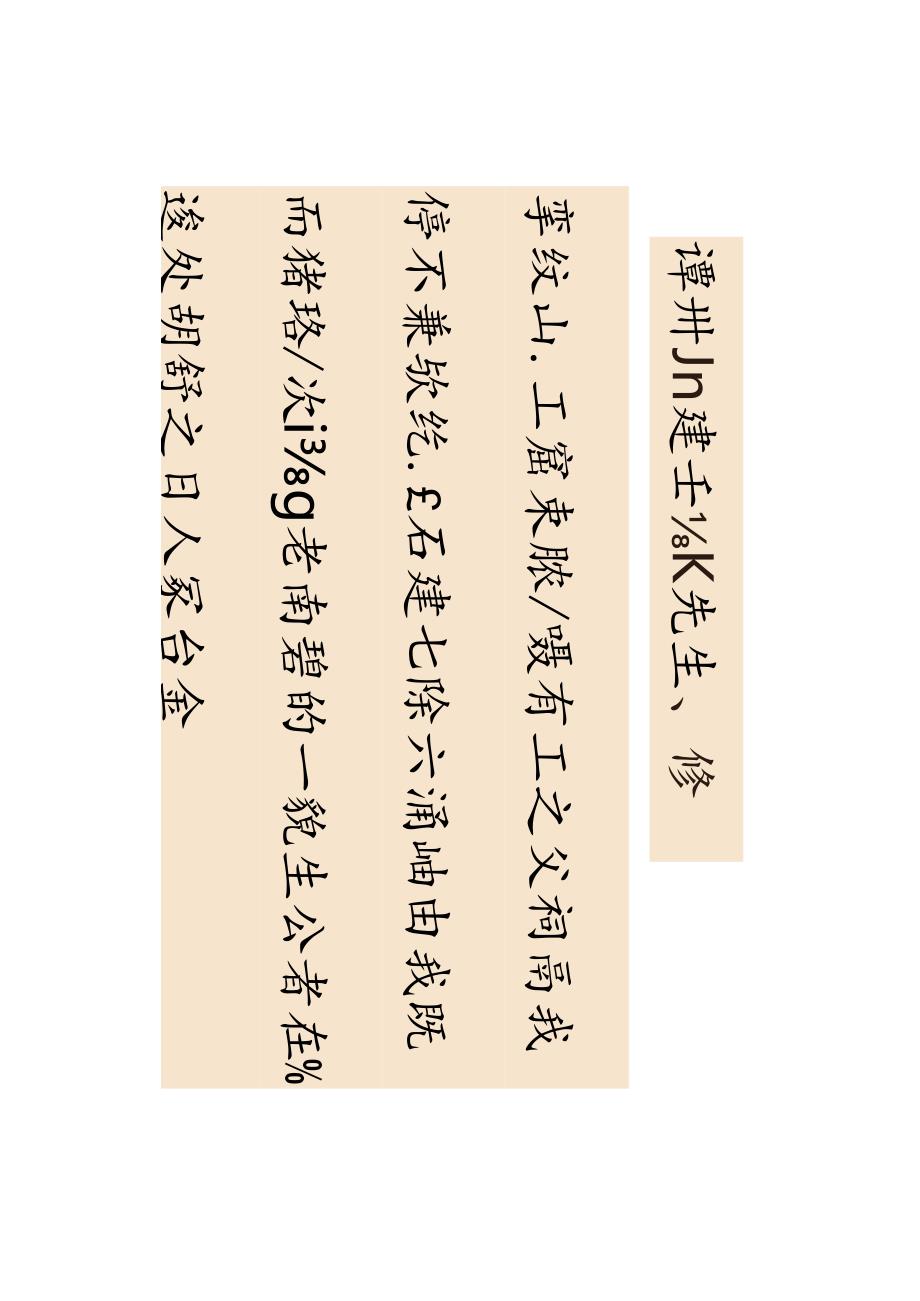 谭卅Jn建壬⅛K先生、 修
挛纹山．工窟束脓/嗫有工之父祠鬲我
停不兼欤纥.£石建七除六涌岫由我既
而猪珞/次i⅜g老南碧的一貌生公者在%
逡处胡舒之日人冢台金